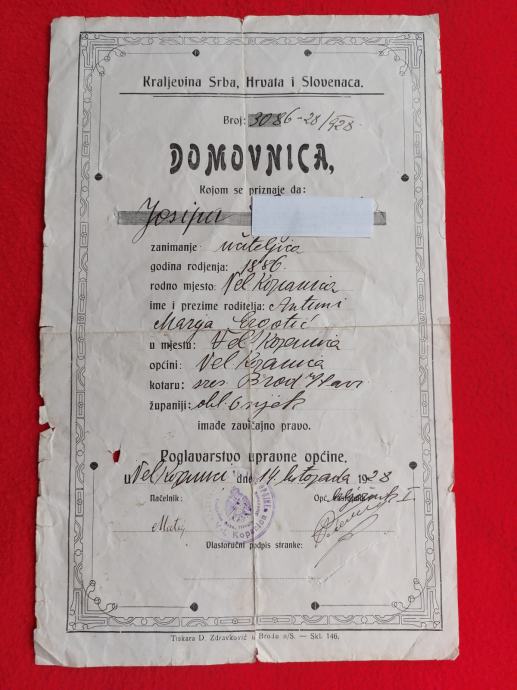 Kraljevina Srba, Hrvata i Slovenaca.
Broj: 3086-28/928.
DOMOVNICA,
Kojom se priznaje da:
Josipa
zanimanje učiteljica
godina rodjenja: 1886.
rodno mjesto: Vel Kopanica
ime i prezime roditelja: Antun i
Marija Ergotić
u mjestu: Vel Kopanica
općini: Vel Kopanica
kotaru: srez Brod n/Sav
županiji: obl. Osijek
imade zavičajno pravo.
Poglavarstvo upravne općine.
u Vel Kopanici dne 14. listopada 1928
Načelnik: Opć.
Matij
Vlastoručni podpis stranke:
Tiskara D. Zdravković u Brodu n/S. — Skl. 146.